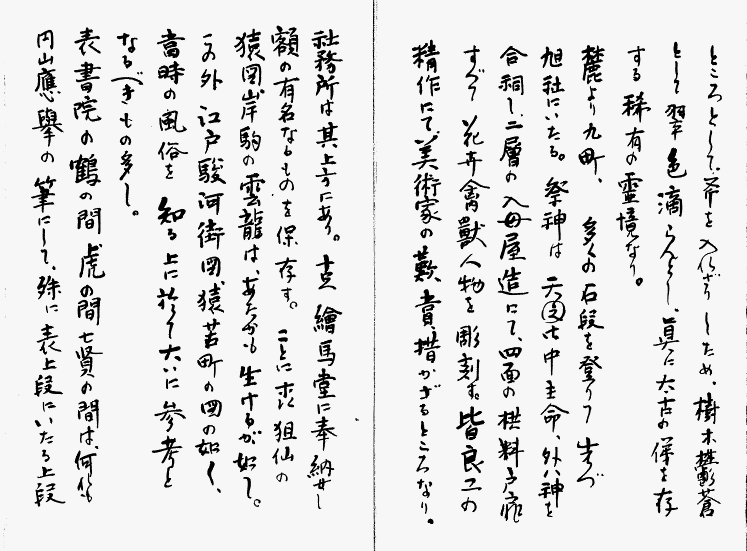 ところとして、斧を入れざりしため、樹木鬱蒼
として翠色滴らんとし、真に太古の俤を存
する稀有の靈境なり。
麓より九町、多くの石段を登りて先づ
旭社にいたる。祭神は天御中主命、外八神を
合祠し、二層の入母屋造にて、四面の拱料戸扉
すべて花卉禽獸人物を彫刻す。皆良工の
精作にて、美術家の歎賞措かざるところなり。
社務所は其上方にあり。古繪馬堂に奉納せし
額の有名なるものを保存す。ことに狙仙の
猿図岸駒の雲龍は、あたかも生けるが如し。
この外江戸駿河街図猿若町の図の如く、
當時の風俗を知る上に於て大いに参考と
なるべきもの多し。
表書院の鶴の間虎の間七賢の間は、何れも
円山應擧の筆にして、殊に表上段にいたる上段